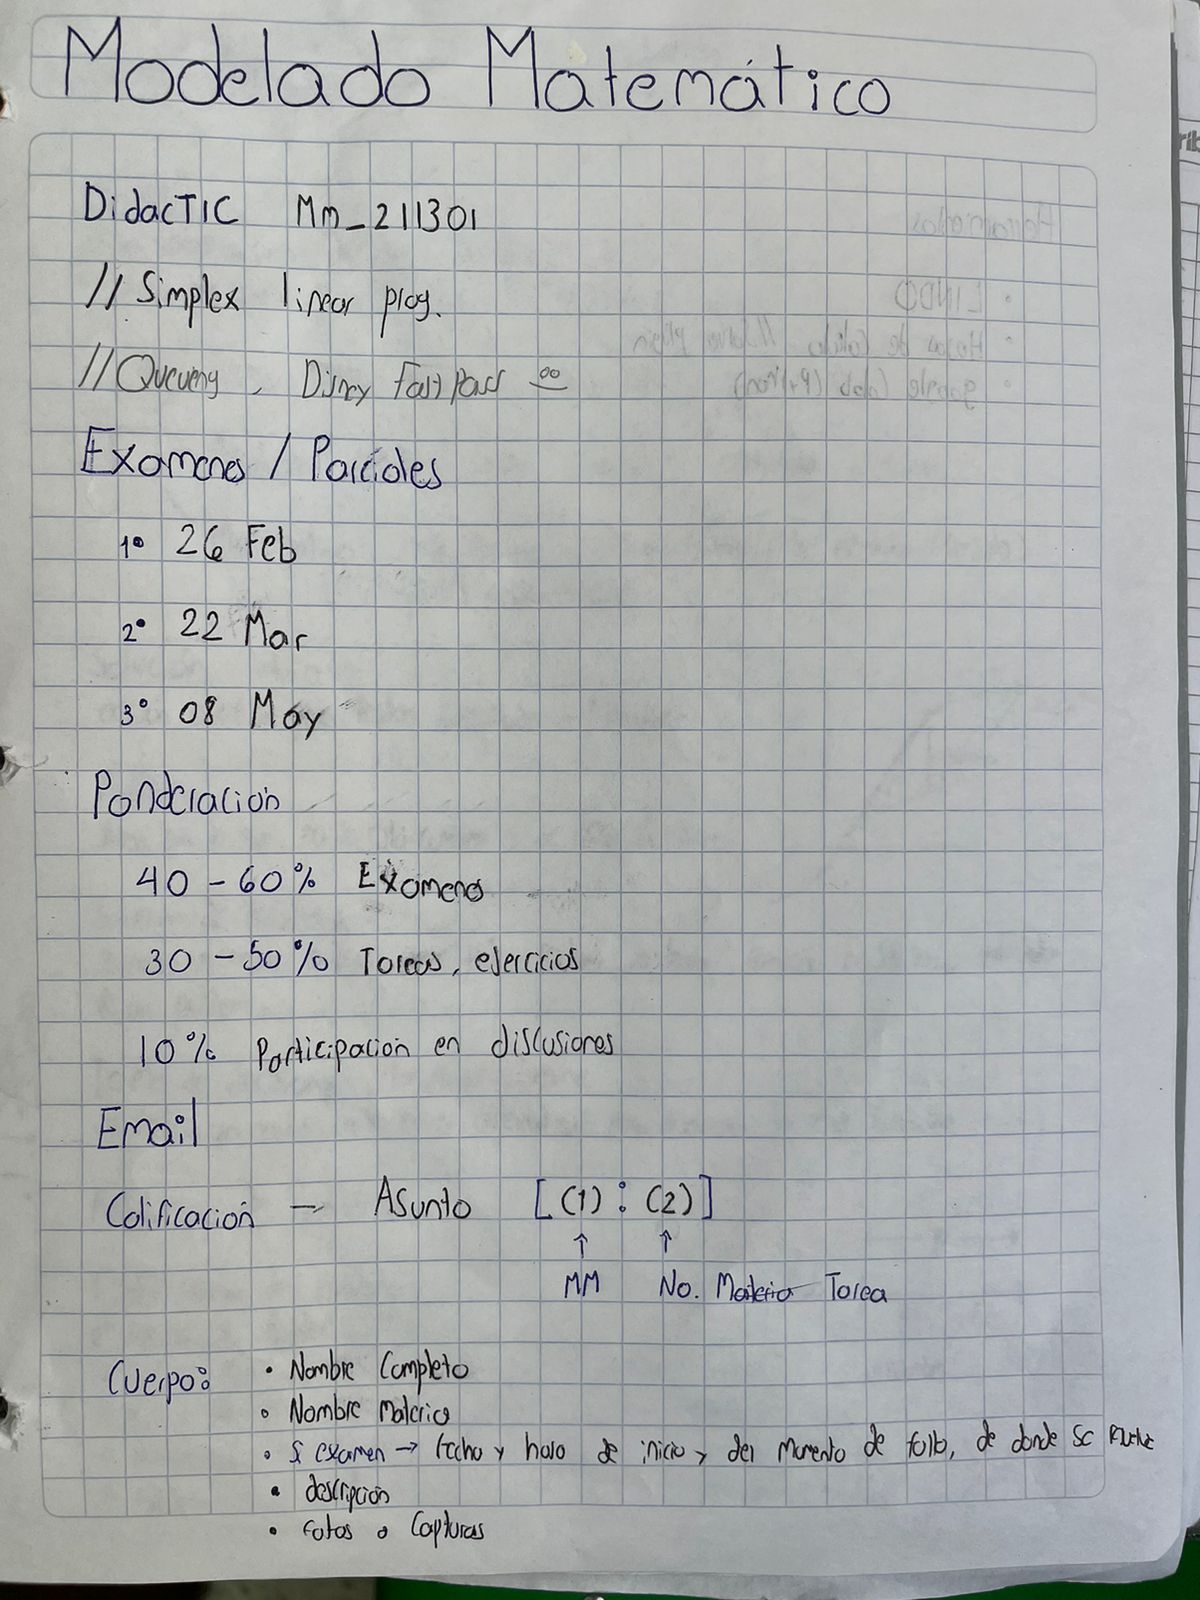 Modelado Matemático
DidacTIC Mm_211301
// Simplex linear prog.
// Queueng, Disney Fast Pass
Examenes / Parciales
1° 26 Feb
2° 22 Mar
3° 08 May
Ponderacion
40 - 60% Examenes
30 - 50% Tareas, ejercicios
10% Participacion en discusiones
Email
Calificacion - Asunto [(1) : (2)]
↑ ↑
MM No. Materia Tarea
Cuerpo: • Nombre Completo
• Nombre Materia
• Si examen → fecha y hora de inicio y del momento de fallo, de donde se
• descripcion
• Fotos o Capturas
Herramientas
• LINDO
• Hojas de Calculo // solver plugin
• google Colab (Python)